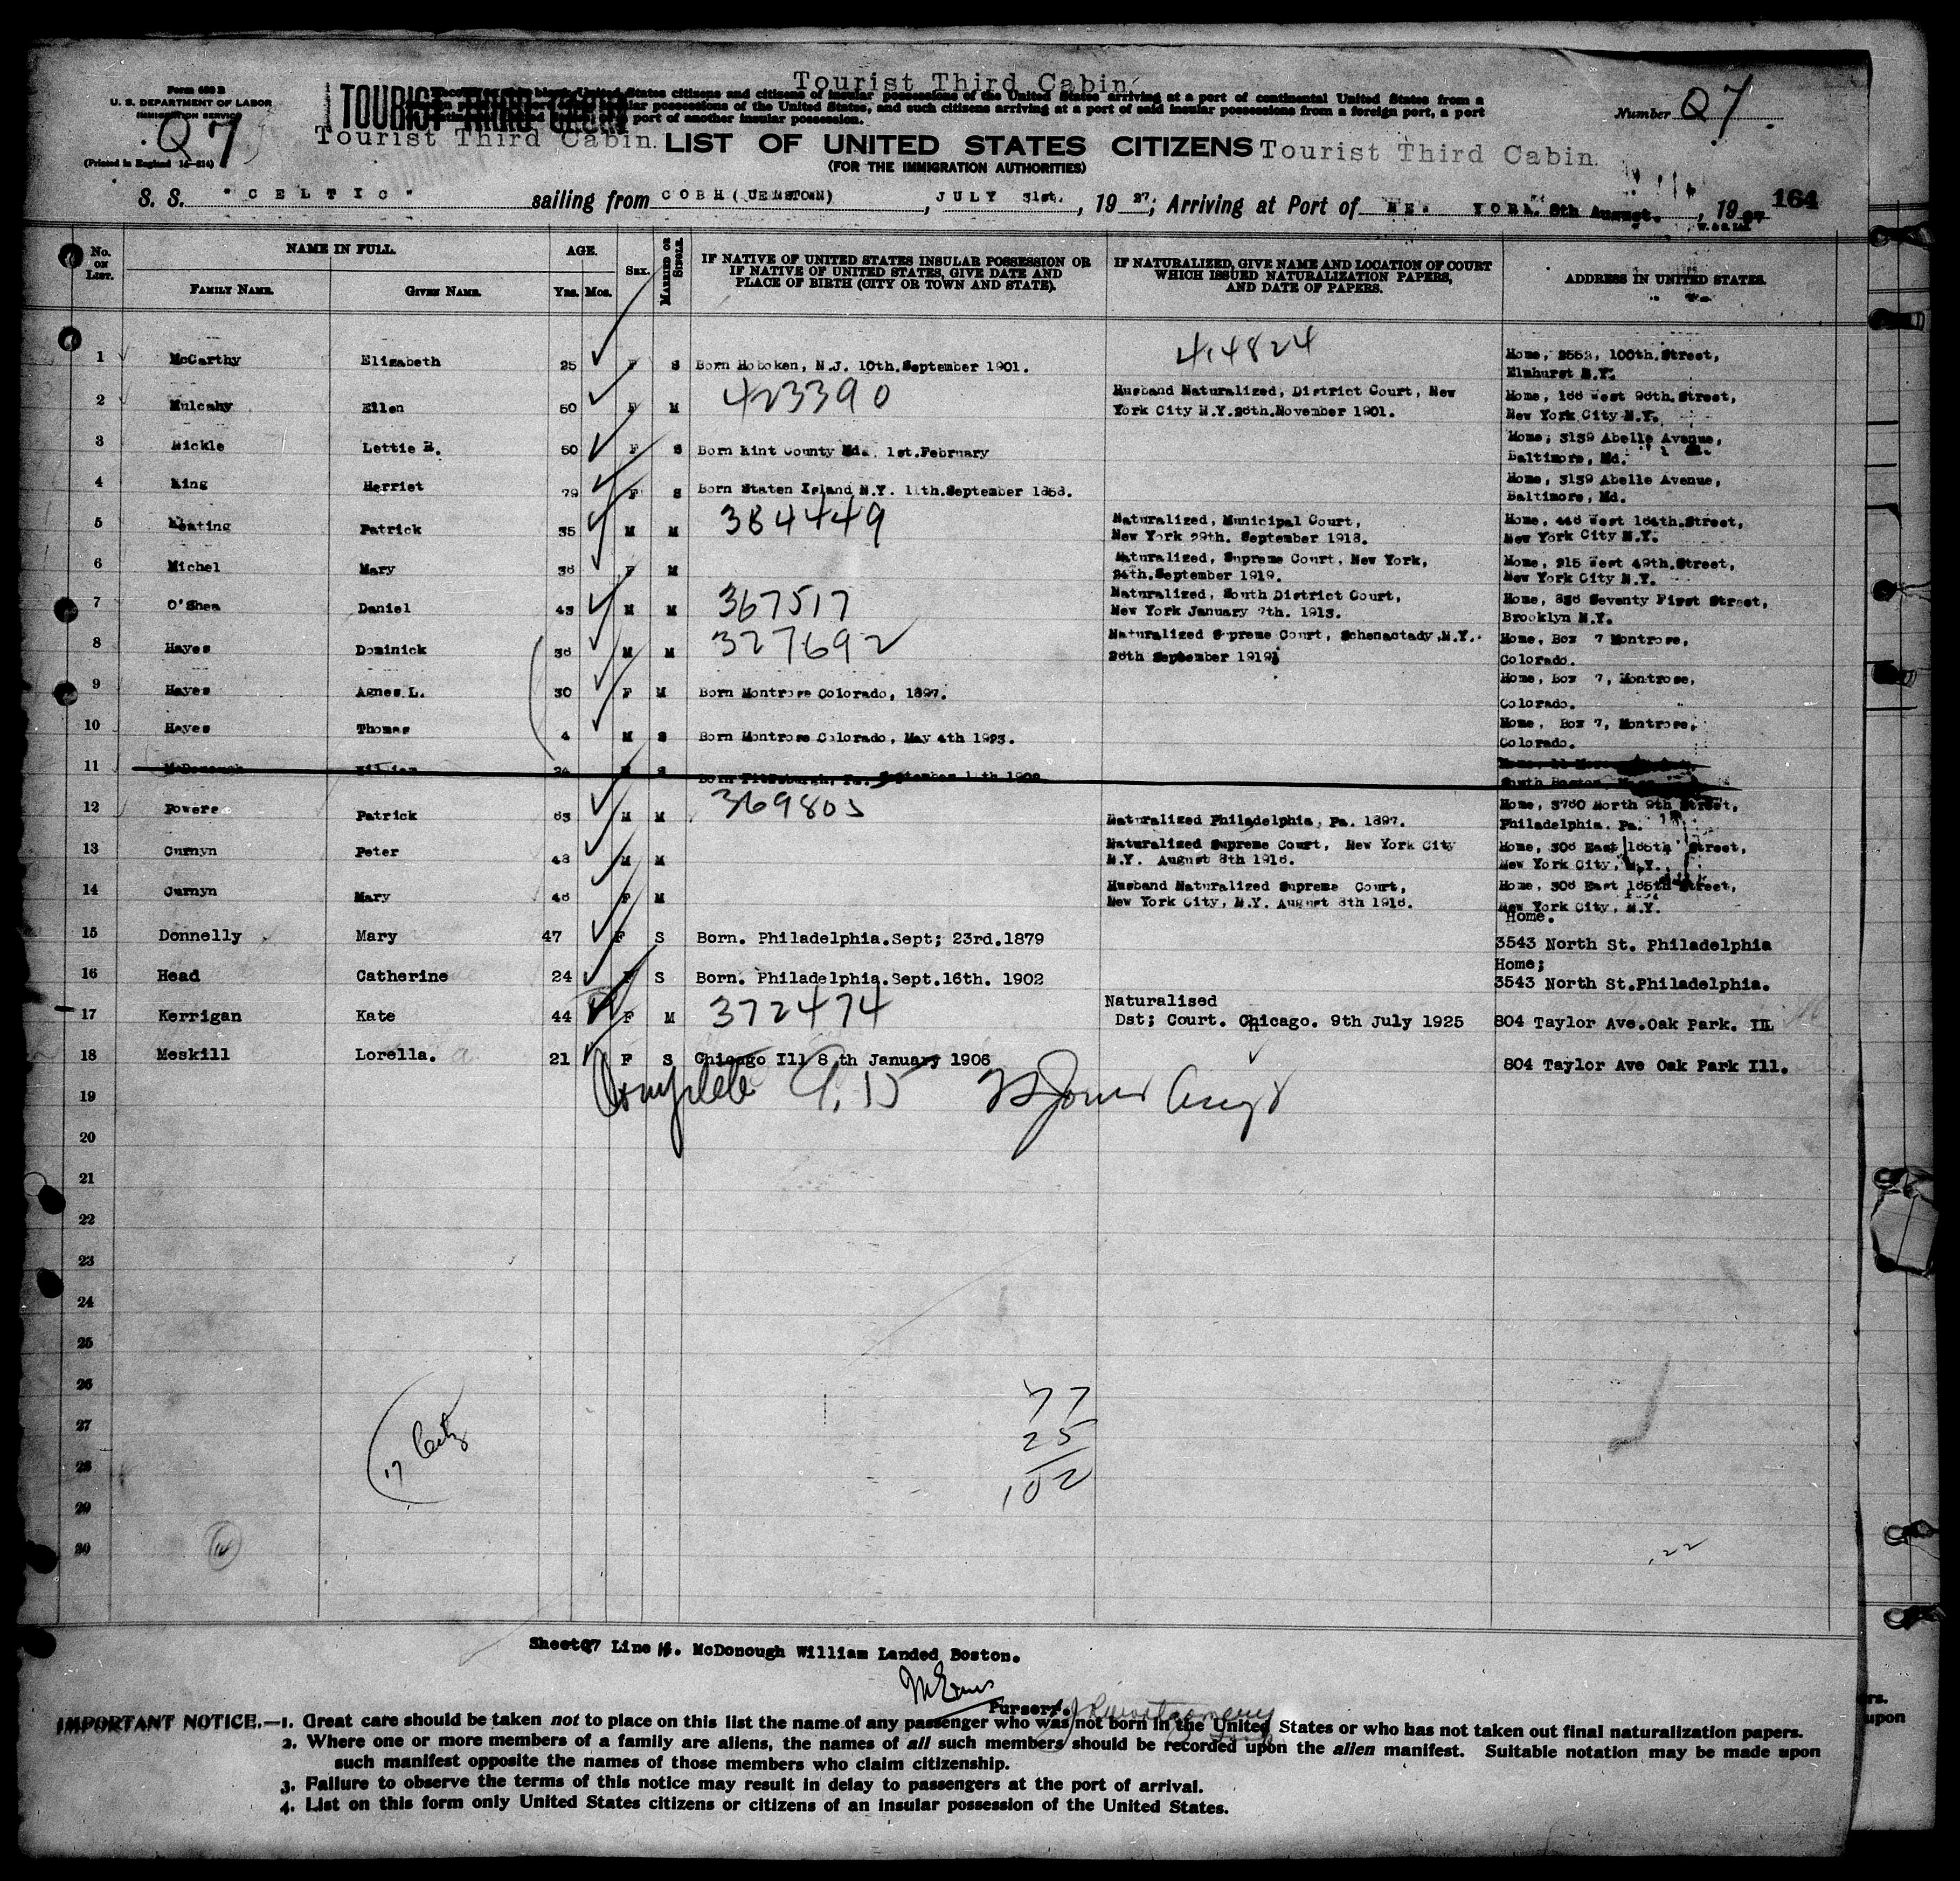 Tourist Third Cabin.
Form 630 B
U. S. DEPARTMENT OF LABOR
IMMIGRATION SERVICE
Q 7
(Printed in England
TOURIST THIRD CABIN
United States citizens and citizens of insular possessions of the United States arriving at a port of continental United States from a
insular possessions of the United States, and such citizens arriving at a port of said insular possessions from a foreign port, a port
port of another insular possession.
Number Q 7.
Tourist Third Cabin. LIST OF UNITED STATES CITIZENS Tourist Third Cabin.
(FOR THE IMMIGRATION AUTHORITIES)
S. S. "CELTIC" sailing from COBH ( , JULY 31st. , 1927; Arriving at Port of YORK. 8th August. , 19 164
No. ON LIST.
NAME IN FULL.
FAMILY NAME.
GIVEN NAME.
AGE.
Yrs. Mos.
SEX.
MARRIED OR SINGLE.
IF NATIVE OF UNITED STATES INSULAR POSSESSION OR
IF NATIVE OF UNITED STATES, GIVE DATE AND
PLACE OF BIRTH (CITY OR TOWN AND STATE).
IF NATURALIZED, GIVE NAME AND LOCATION OF COURT
WHICH ISSUED NATURALIZATION PAPERS,
AND DATE OF PAPERS.
ADDRESS IN UNITED STATES.
414824
1 McCarthy Elizabeth 25 F S Born Hoboken, N.J. 10th.September 1901. Home, 100th.Street,
Elmhurst N.Y.
423390
2 Mulcahy Ellen 50 F M Husband Naturalized, District Court, New Home, West Street,
York City N.Y. November 1901. New York City N.Y.
3 Mickle Lettie 50 F S Born Kint County Md. 1st.February Home, 3139 Abelle Avenue,
Baltimore, Md.
4 King Herriet 79 F S Born Staten Island N.Y. 11th.September Home, 3139 Abelle Avenue,
Baltimore, Md.
384449
5 Keating Patrick 35 M M Naturalized, Municipal Court, Home, West Street,
New York 29th. September 1918. New York City N.Y.
6 Michel Mary 36 F M Naturalized, Supreme Court, New York, Home, 215 West 49th.Street,
24th.September 1919. New York City N.Y.
367517
7 O'Shea Daniel 43 M M Naturalized, South District Court, Home, Seventy First Street,
New York January 7th. 1913. Brooklyn N.Y.
327692
8 Hayes Dominick 36 M M Naturalized Supreme Court, Schenactady,N.Y. Home, Box 7 Montrose,
September 1919 Colorado.
9 Hayes Agnes L. 30 F M Born Montrose Colorado, 1897. Home, Box 7, Montrose,
Colorado.
10 Hayes Thomas 4 M S Born Montrose Colorado, May 4th 1923. Home, Box 7, Montrose,
Colorado.
11 McDonough William 24 S Born Pittsburgh, Pa. September
South Boston,
369805
12 Powers Patrick 63 M M Naturalized Philadelphia, Pa. 1897. Home, 3760 North 9th Street,
Philadelphia. Pa.
13 Curnyn Peter 48 M M Naturalized Supreme Court, New York City Home, East Street,
N.Y. August 8th 1916. New York City, N.Y.
14 Curnyn Mary 46 F M Husband Naturalized Supreme Court, Home, East Street,
New York City, N.Y. August 8th 1916. New York City, N.Y.
Home.
15 Donnelly Mary 47 F S Born. Philadelphia.Sept; 23rd.1879 3543 North St. Philadelphia
Home;
16 Head Catherine 24 F S Born. Philadelphia.Sept.16th. 1902 3543 North St.Philadelphia.
372474
Naturalised
17 Kerrigan Kate 44 F M Dst; Court. Chicago. 9th July 1925 804 Taylor Ave.Oak Park. Ill
18 Meskill Lorella. 21 F S Chicago Ill 8 th January 1906 804 Taylor Ave Oak Park Ill.
Complete 9.15
19
20
21
22
23
24
25
26
77
27
25
28
102
29
30
Sheet Q7 Line 11. McDonough William Landed Boston.
Purser.
IMPORTANT NOTICE.—1. Great care should be taken not to place on this list the name of any passenger who was not born in the United States or who has not taken out final naturalization papers.
2. Where one or more members of a family are aliens, the names of all such members should be recorded upon the alien manifest. Suitable notation may be made upon
such manifest opposite the names of those members who claim citizenship.
3. Failure to observe the terms of this notice may result in delay to passengers at the port of arrival.
4. List on this form only United States citizens or citizens of an insular possession of the United States.
upon